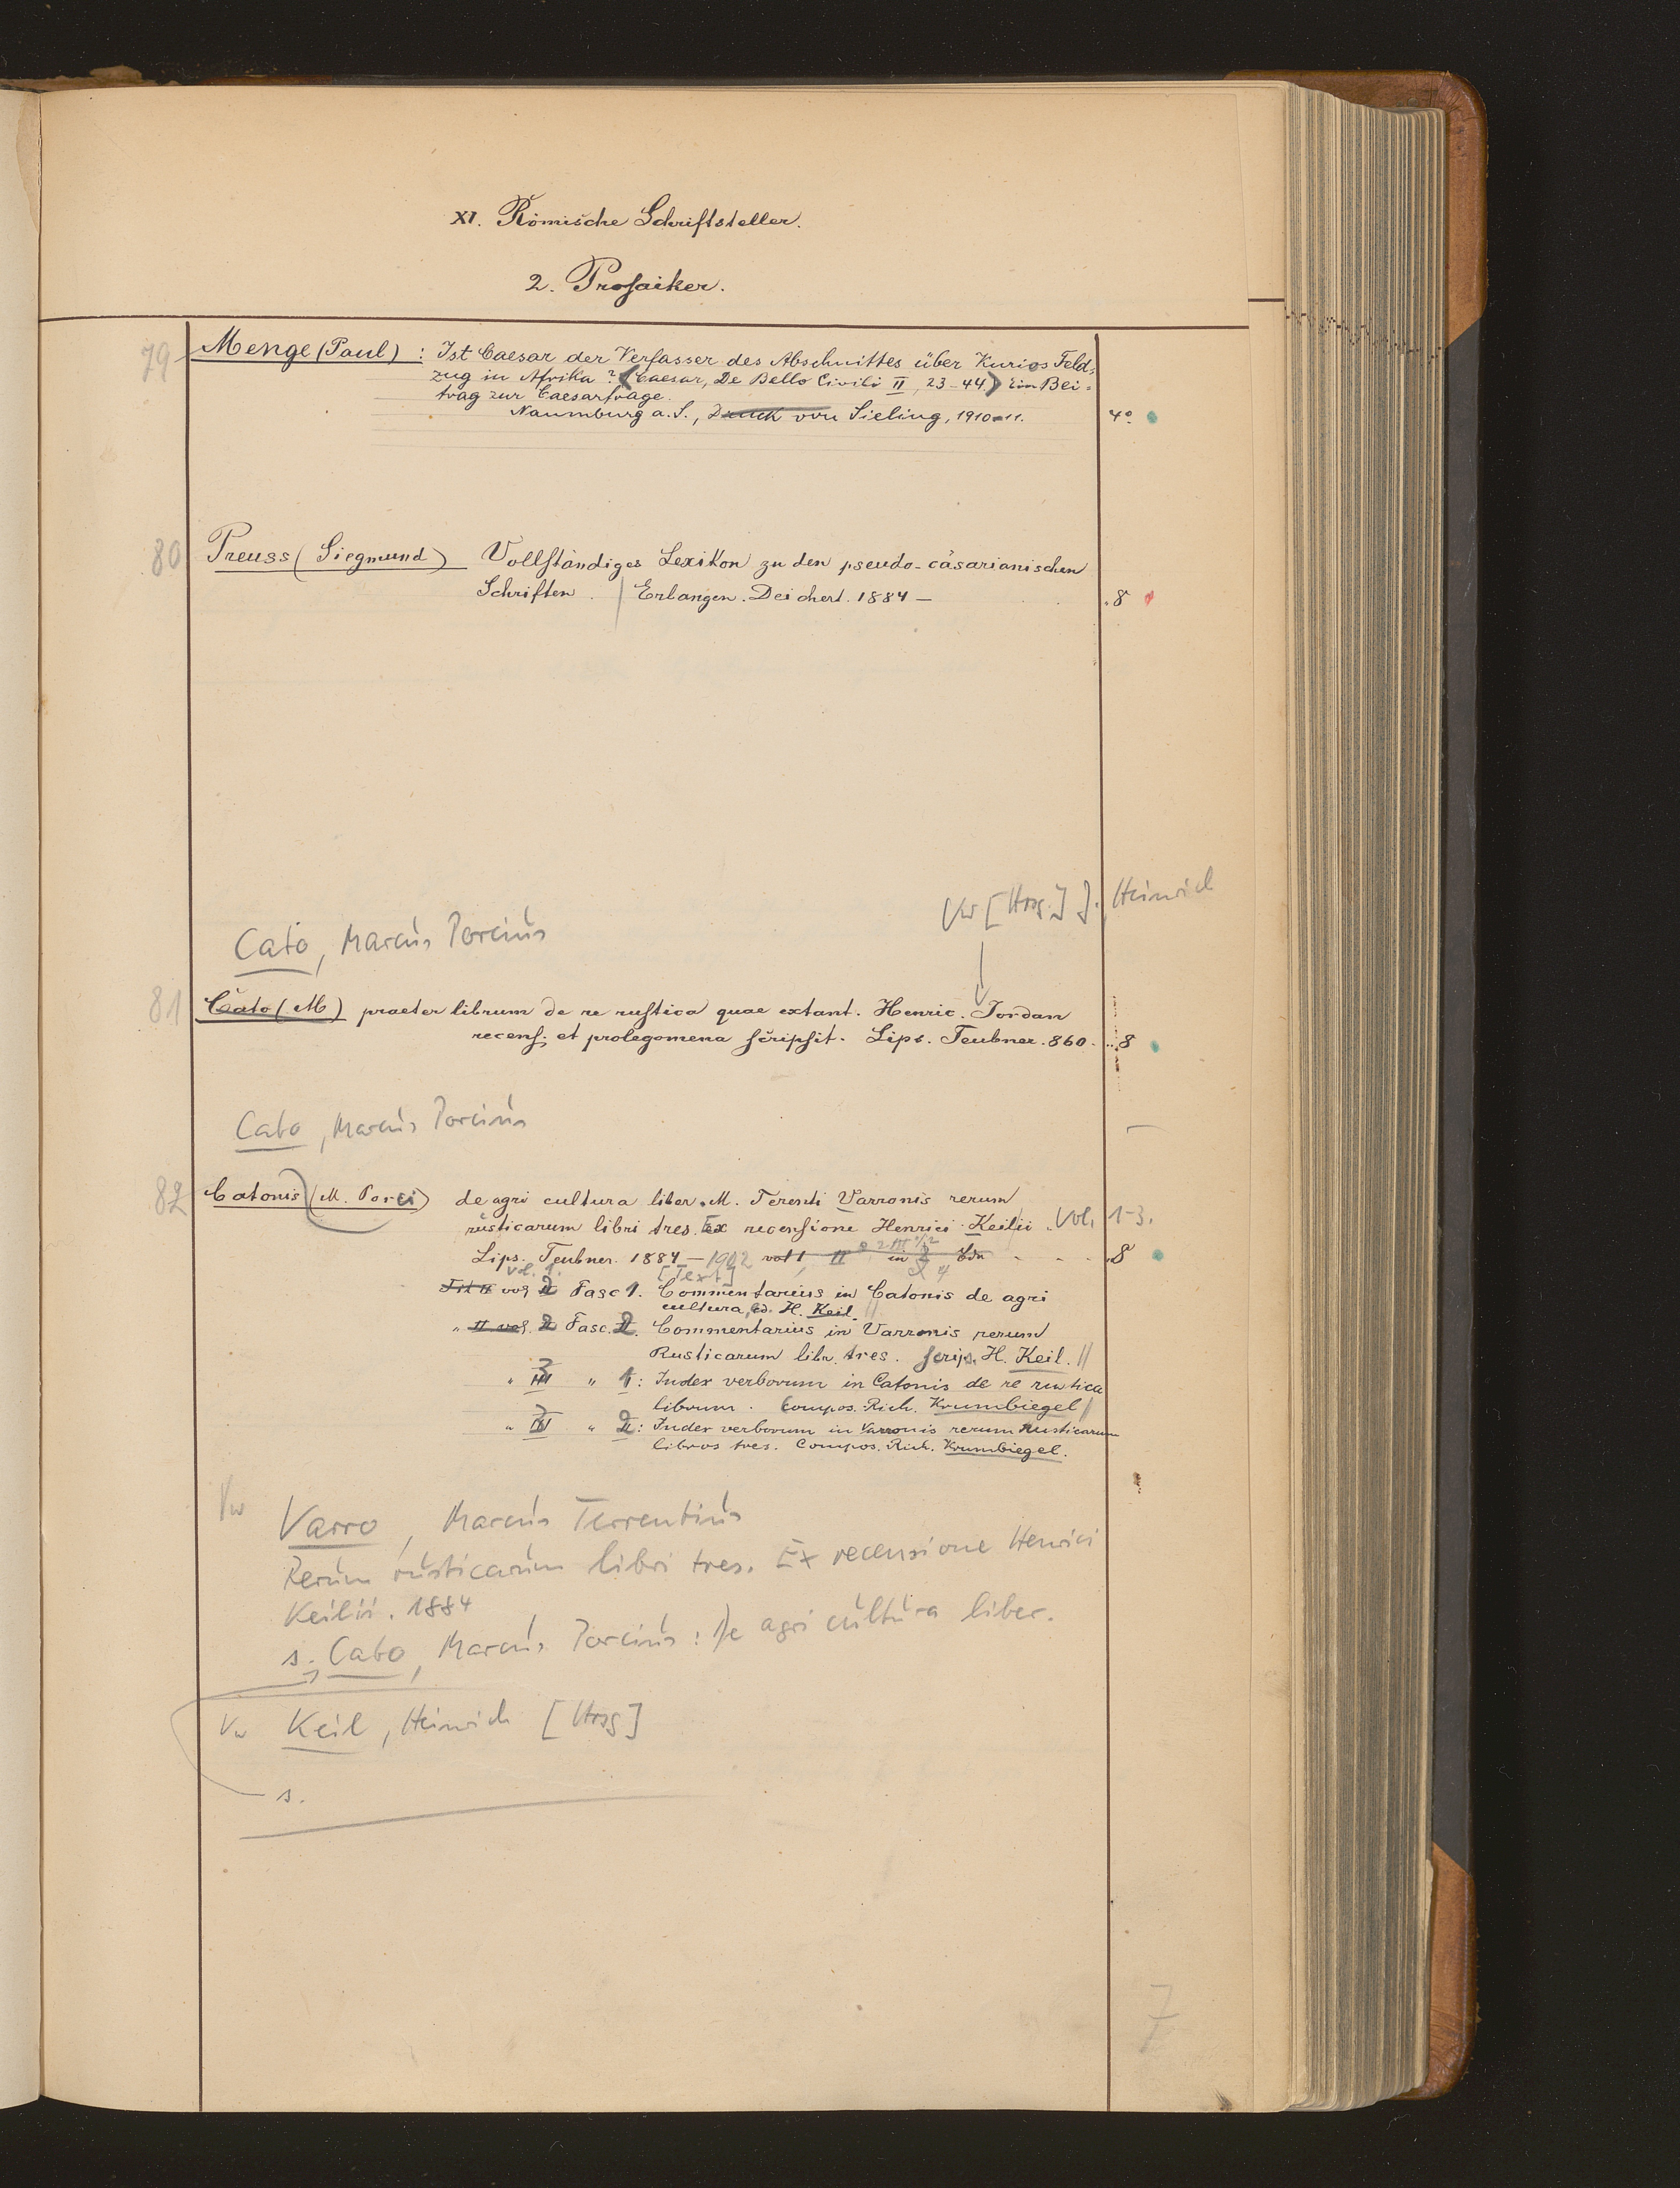 XI. Römische Schriftsteller.
2. Prosaiker.
79 Menge (Paul) : Ist Caesar der Verfasser des Abschnittes über Kurios Feld-
zug in Afrika? (Caesar, De Bello Civili II, 23-44.) Ein Bei-
trag zur Caesarfrage.
Naumburg a. S., Druck von Sieling, 1910=11. 4°.
80 Preuss (Siegmund) Vollständiges Lexikon zu den pseudo-cäsarianischen
Schriften. | Erlangen. Deichert. 1884 — 8
Vw [Hrsg.] J., Heinrich
Cato, Marcus Porcius
81 Cato (M) praeter librum de re rustica quae extant. Henric. Jordan
recens. et prolegomena scripsit. Lips. Teubner. 860. 8
Cato, Marcus Porcius
82 Catonis (M. Porci) de agri cultura liber. M. Terenti Varronis rerum
rusticarum libri tres. Ex recensione Henrici Keilii. Vol. 1-3.
Lips. Teubner. 1884 — 1902 vol I, II in Bdn 8
vol. 1. [Text]
vol II Fasc 1. Commentarius in Catonis de agri
cultura, ed. H. Keil. ||
" II vol. 2 Fasc. 2. Commentarius in Varronis rerum
Rusticarum libr. tres. scrips. H. Keil. ||
" 3 " 1: Index verborum in Catonis de re rustica
librum. Compos. Rich. Krumbiegel ||
" 3 " 2: Index verborum in Varronis rerum Rusticarum
libros tres. Compos. Rich. Krumbiegel.
Vw Varro, Marcus Terrentius
Rerum rusticarum libri tres. Ex recensione Henrici
Keilii. 1884
s. Cato, Marcus Porcius: De agri cultura liber.
Vw Keil, Heinrich [Hrsg]
s.
7